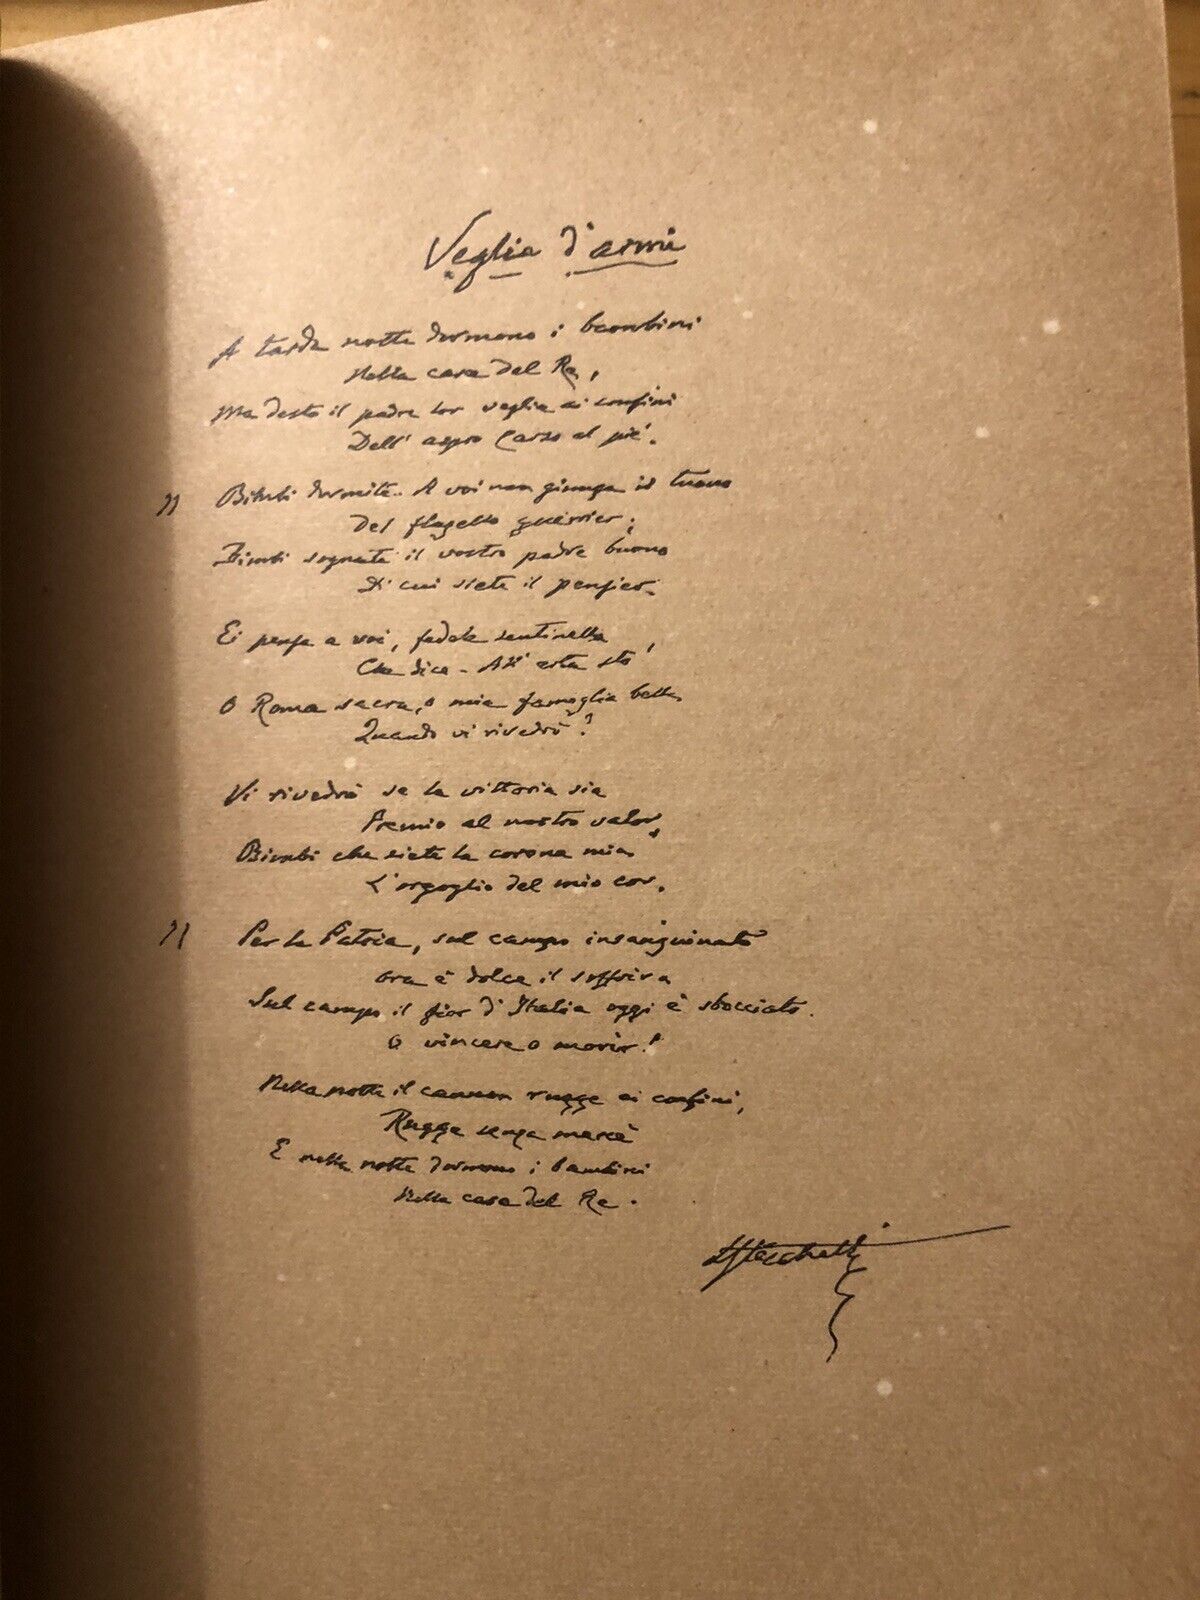 Veglia d'armi
A tarda notte dormono i bambini
Nella casa del Re,
Ma desto il padre lor veglia ai confini
Dell' aspro Carso al piè.
Bimbi dormite.. A voi non giunga il tuono
Del flagello guerrier;
Bimbi sognate il vostro padre buono
Di cui siete il pensier.
Ei pensa a voi, fedele sentinella
Che dice - All' erta sto!
O Roma sacra, o mia famoglia bella
Quando vi rivedrò?
Vi rivedrò se la vittoria sia
Premio al nostro valor,
Bimbi che siete la corona mia
L'orgoglio del mio cor.
Per la Patria, sul campo insanguinato
Ora è dolce il soffrir
Sul campo il fior d'Italia oggi è sbocciato.
O vincere o morir!
Nella notte il cannon rugge ai confini,
Rugge senza mercè
E nella notte dormono i bambini
Nella casa del Re.
LStecchetti